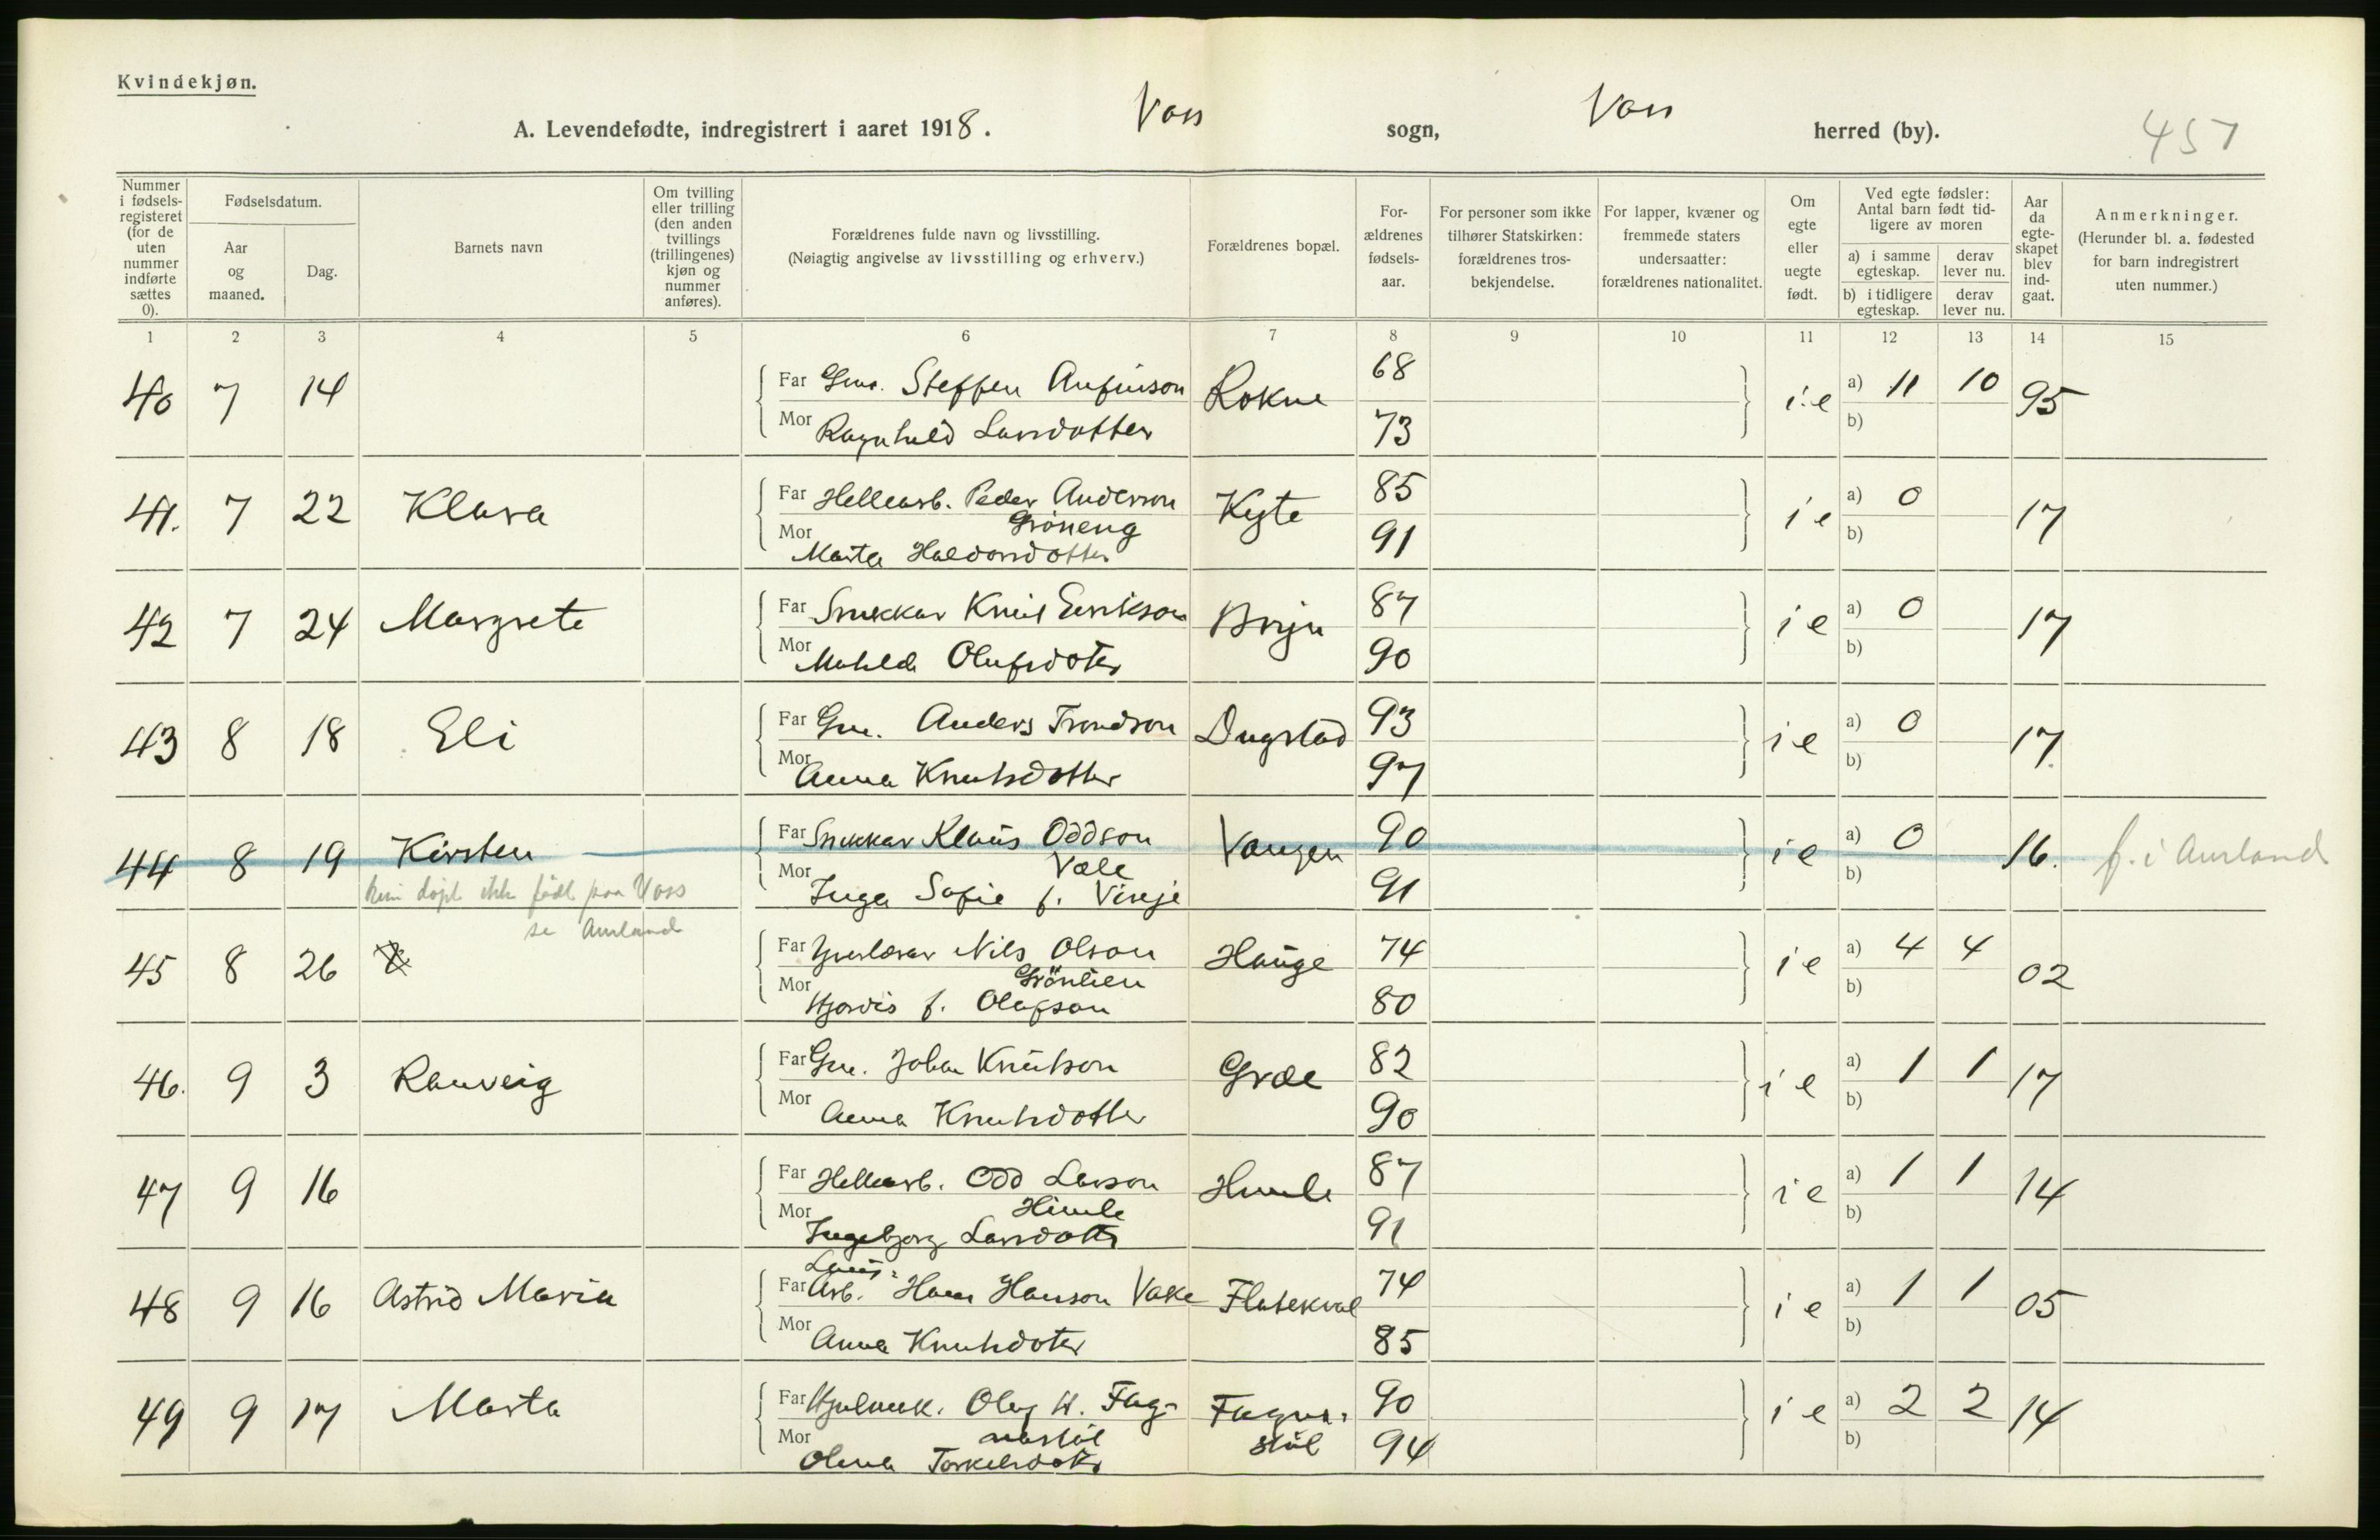 Kvindekjøn.
A. Levendefødte, indregistrert i aaret 1918. Voss sogn, Voss herred (by). 457
Nummer i fødsels-registeret (for de uten nummer indførte sættes 0).
Fødselsdatum.
Aar og maaned.
Dag.
Barnets navn
Om tvilling eller trilling (den anden tvillings (trillingenes) kjøn og nummer anføres).
Forældrenes fulde navn og livsstilling.
(Nøiagtig angivelse av livsstilling og erhverv.)
Forældrenes bopæl.
For-ældrenes fødsels-aar.
For personer som ikke tilhører Statskirken: forældrenes tros-bekjendelse.
For lapper, kvæner og fremmede staters undersaatter: forældrenes nationalitet.
Om egte eller uegte født.
Ved egte fødsler: Antal barn født tid-ligere av moren
a) i samme egteskap.
derav lever nu.
b) i tidligere egteskap.
derav lever nu.
Aar da egte-skapet blev ind-gaat.
Anmerkninger.
(Herunder bl. a. fødested for barn indregistrert uten nummer.)
1 2 3 4 5 6 7 8 9 10 11 12 13 14 15
40 7 14 Far Steffen Anfinson Rokne 68 i e a) 11 10 95
Mor Ragnhild Larsdotter 73 b)
41. 7 22 Klara Far Hellearb. Peder Anderson Kyte 85 i e a) 0 17
Grøneng
Mor Marta Haldorsdotter 91 b)
42 7 24 Margrete Far Snekkar Knut Eirikson Bryn 87 i e a) 0 17
Mor Olufsdoter 90 b)
43 8 18 Eli Far Gm. Anders Trondson Dugstad 93 i e a) 0 17.
Mor Anna Knutsdotter 97 b)
44 8 19 Kirsten Far Snekkar Klaus Oddson Vangen 90 i e a) 0 16. f. i Aurland
Væle
Mor Inga Sofie f. Vinje 91 b)
kun døpt ikke født paa Voss
se Aurland
45 8 26 Far Nils Olson Hauge 74 i e a) 4 4 02
Grönlien
Mor Hjordis f. Olafson 80 b)
46. 9 3 Ranveig Far Gm. Johan Knutson Græe 82 i e a) 1 1 17
Mor Anna Knutsdotter 90 b)
47 9 16 Far Hellearb. Odd Larson Himle 87 i e a) 1 1 14
Himle
Mor Ingebjorg Larsdotter 91 b)
48 9 16 Astrid Maria Far Arb. Hans Hanson Flatekval 74 i e a) 1 1 05
Mor Anna Knutsdoter 85 b)
49 9 17 Marta Far Olav H. Fag- Fagna- 90 i e a) 2 2 14
nastöl støl
Mor Olina Torkelsdotter 94 b)